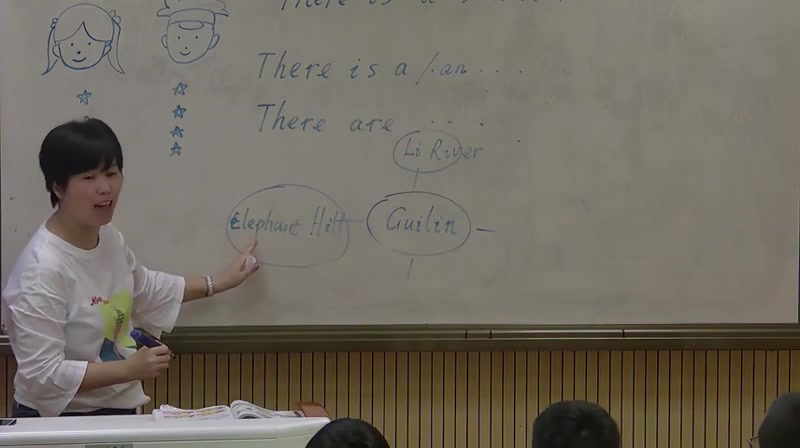 There is a
There is a / an . . .
There are . . .
Li River
Elephant Hill Guilin